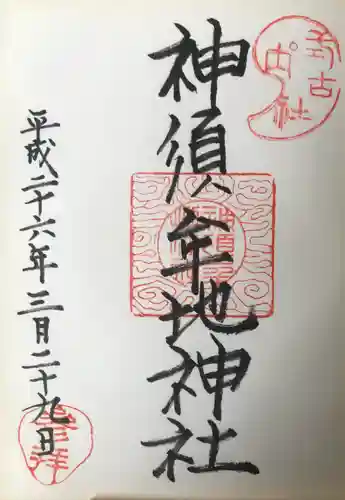 神須牟地神社
平成二十六年三月二十九日